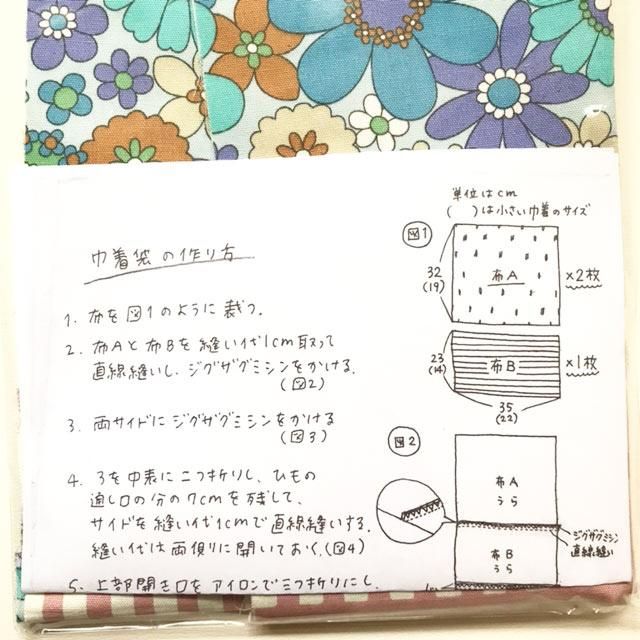 単位はcm
( )は小さい巾着のサイズ
巾着袋の作り方
図1
32
(19)
布A
×2枚
1. 布を図1のように裁つ。
2. 布Aと布Bを縫い代1cm取って
直線縫いし、ジグザグミシンをかける。
(図2)
23
(14)
布B
×1枚
35
(22)
3. 両サイドにジグザグミシンをかける
(図3)
図2
布A
うら
4. 3を中表に二つ折りし、ひもの
通し口の分の7cmを残して、
サイドを縫い代1cmで直線縫いする。
縫い代は両側に開いておく。(図4)
ジグザグミシン
直線縫い
布B
うら
5. 上部開き口をアイロンで三つ折りにし、
1cm